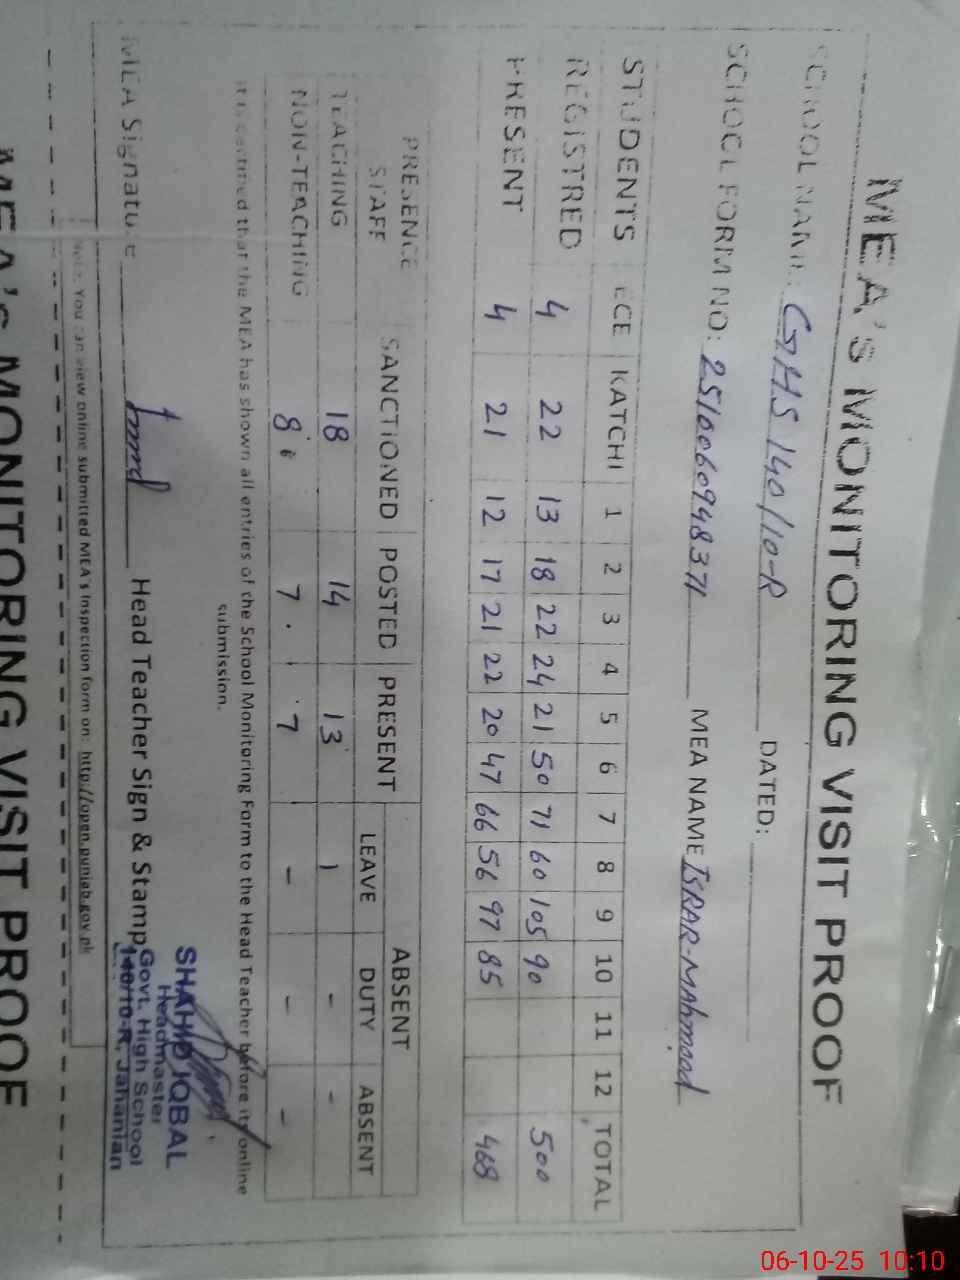 MEA's MONITORING VISIT PROOF
SCHOOL NAME: GHS 140/10-R DATED:
SCHOOL FORM NO: 251006094837 MEA NAME ISRAR-MAHMOOD
STUDENTS ECE KATCHI 1 2 3 4 5 6 7 8 9 10 11 12 TOTAL
REGISTRED 4 22 13 18 22 24 21 50 71 60 105 90 500
PRESENT 4 21 12 17 21 22 20 47 66 56 97 85 468
PRESENCE STAFF SANCTIONED POSTED PRESENT ABSENT
LEAVE DUTY ABSENT
TEACHING 18 14 13 1 - -
NON-TEACHING 8 7 7 - - -
It is certified that the MEA has shown all entries of the School Monitoring Form to the Head Teacher before its online
submission.
MEA Signature Head Teacher Sign & Stamp
SHAHID IQBAL
Headmaster
Govt. High School
140/10-R, Jahanian
Note: You can view online submitted MEA's Inspection form on: http://open.punjab.gov.pk
MEA's MONITORING VISIT PROOF
06-10-25 10:10